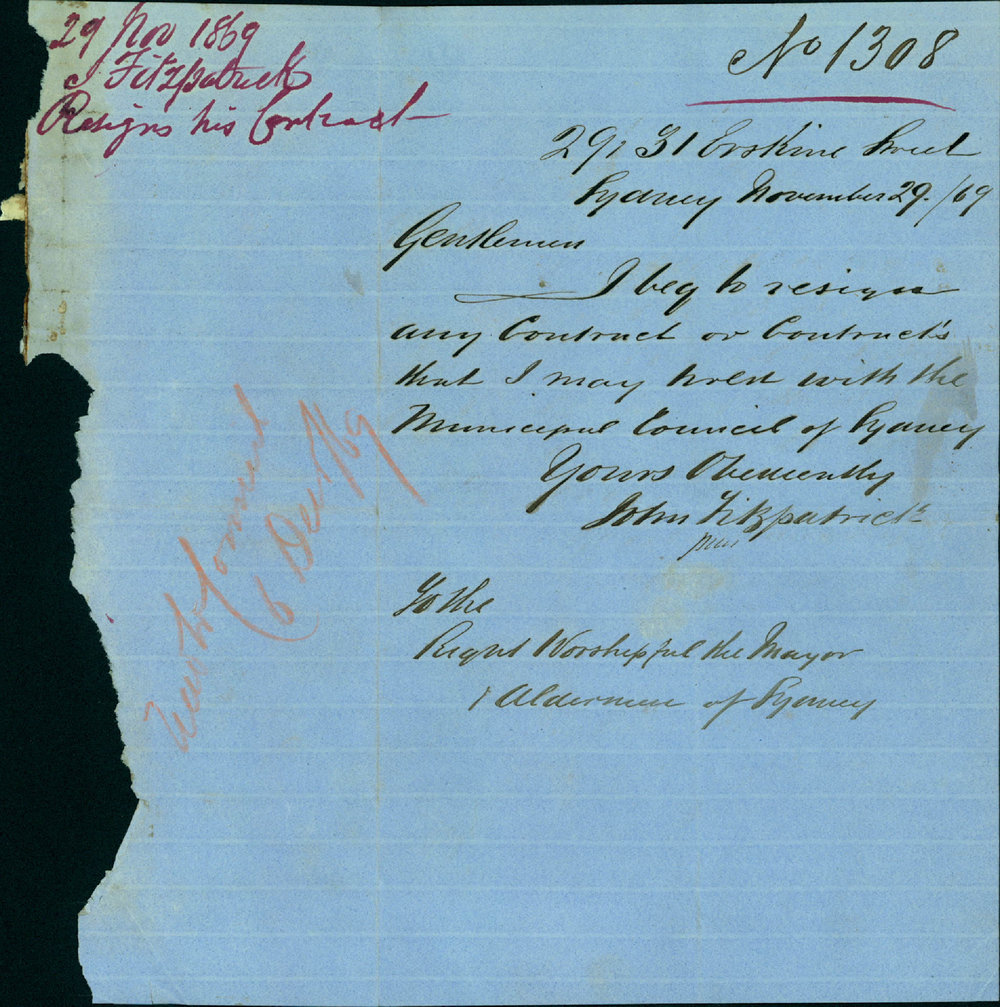 29 Nov 1869
J Fitzpatrick
Resigns his Contract
No 1308
29 & 31 Erskine Street
Sydney November 29/69
Gentlemen
I beg to resign
any Contract or Contract's
that I may hold with the
Municipal Council of Sydney
Yours Obediently
John Fitzpatrick
To the
Right Worshipful the Mayor
& Aldermen of Sydney
6 Dec/69